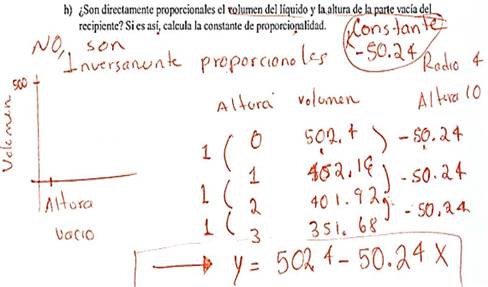 h) ¿Son directamente proporcionales el volumen del líquido y la altura de la parte vacía del
recipiente? Si es así, calcula la constante de proporcionalidad.
Constante
-50.24
NO, son
Inversamente proporcionales
Radio 4
Altura 10
500
Volumen
Altura
vacio
Altura volumen
0 502.4
1 452.16
2 401.92
3 351.68
1 ( ) -50.24
1 ( ) -50.24
1 ( ) -50.24
y = 502.4 - 50.24 x